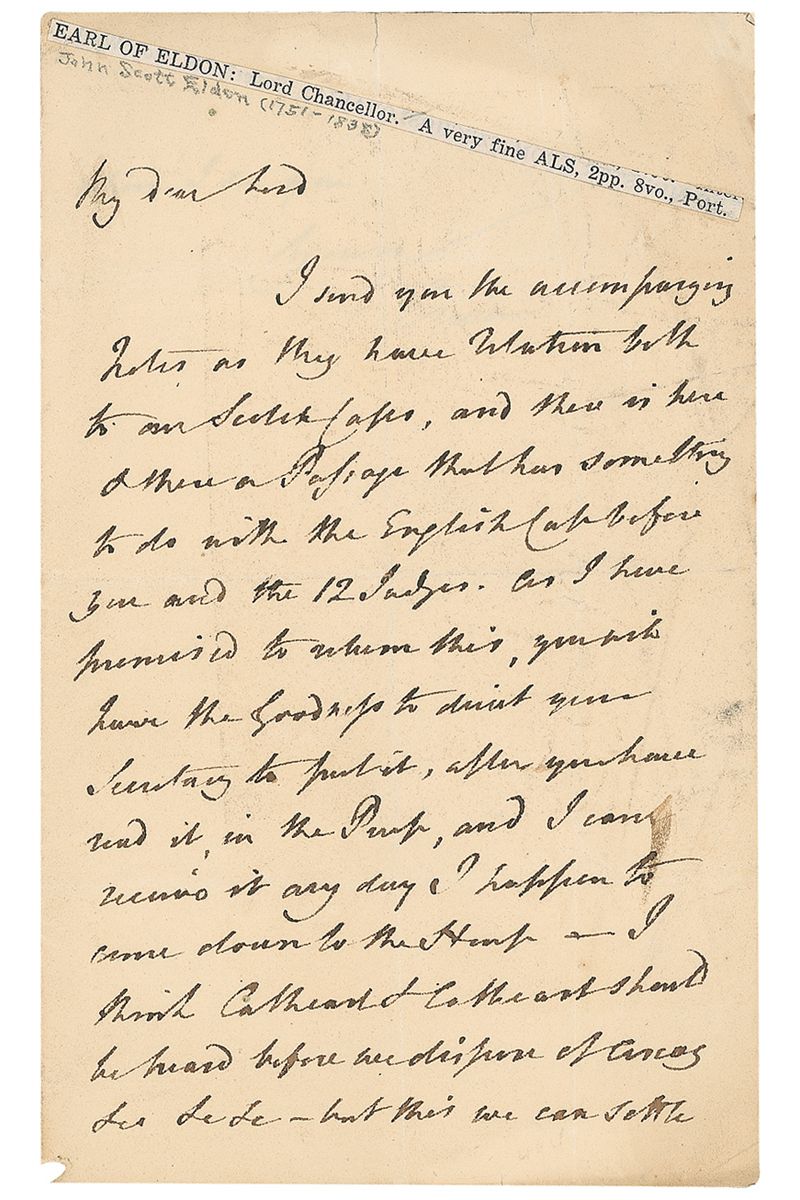 EARL OF ELDON: Lord Chancellor. A very fine ALS, 2pp. 8vo., Port.
John Scott Eldon (1751-1838)
My dear Lord
I send you the accompanying
Notes as they have Relation both
to our Scotch Cases, and there is here
& there a Passage that has something
to do with the English Case before
you and the 12 Judges. As I have
promised to return this, you will
have the Goodness to direct your
Secretary to put it, after you have
read it, in the Purse, and I can
receive it any day I happen to
come down to the House — I
think Cathcart & Cathcart should
be heard before we dispose of
&c &c — but this we can settle